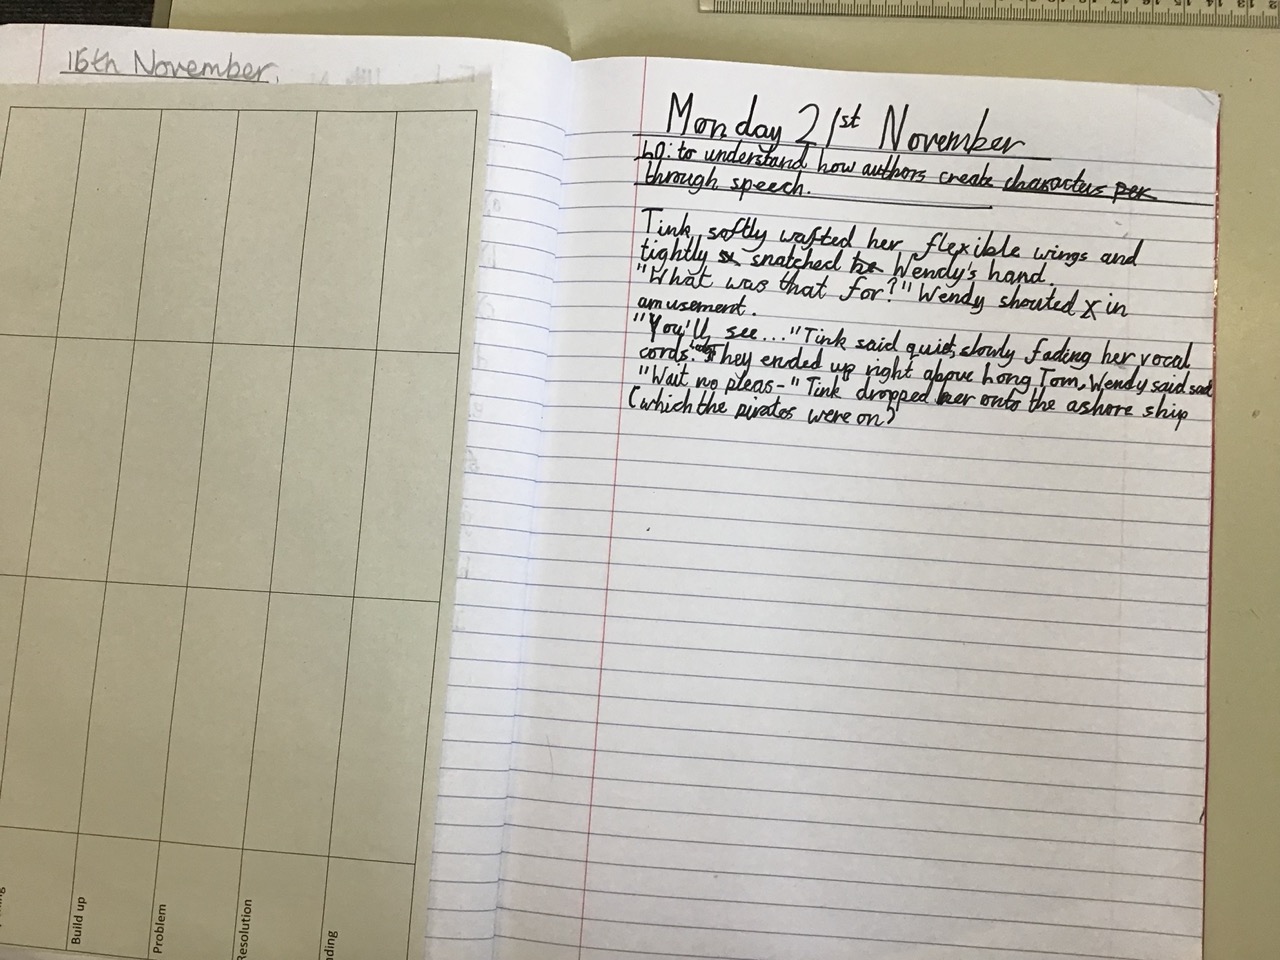 16th November.
Build up
Problem
Resolution
Monday 21st November
LO: to understand how authors create characters per
through speech.
Tink softly wafted her flexible wings and
tightly snatched Wendy's hand.
"What was that for?" Wendy shouted in
amusement.
"You'll see..." Tink said quiet, slowly fading her vocal
cords. They ended up right above Long Tom, Wendy said sad
"Wait no pleas-" Tink dropped her onto the ashore ship
(which the pirates were on)